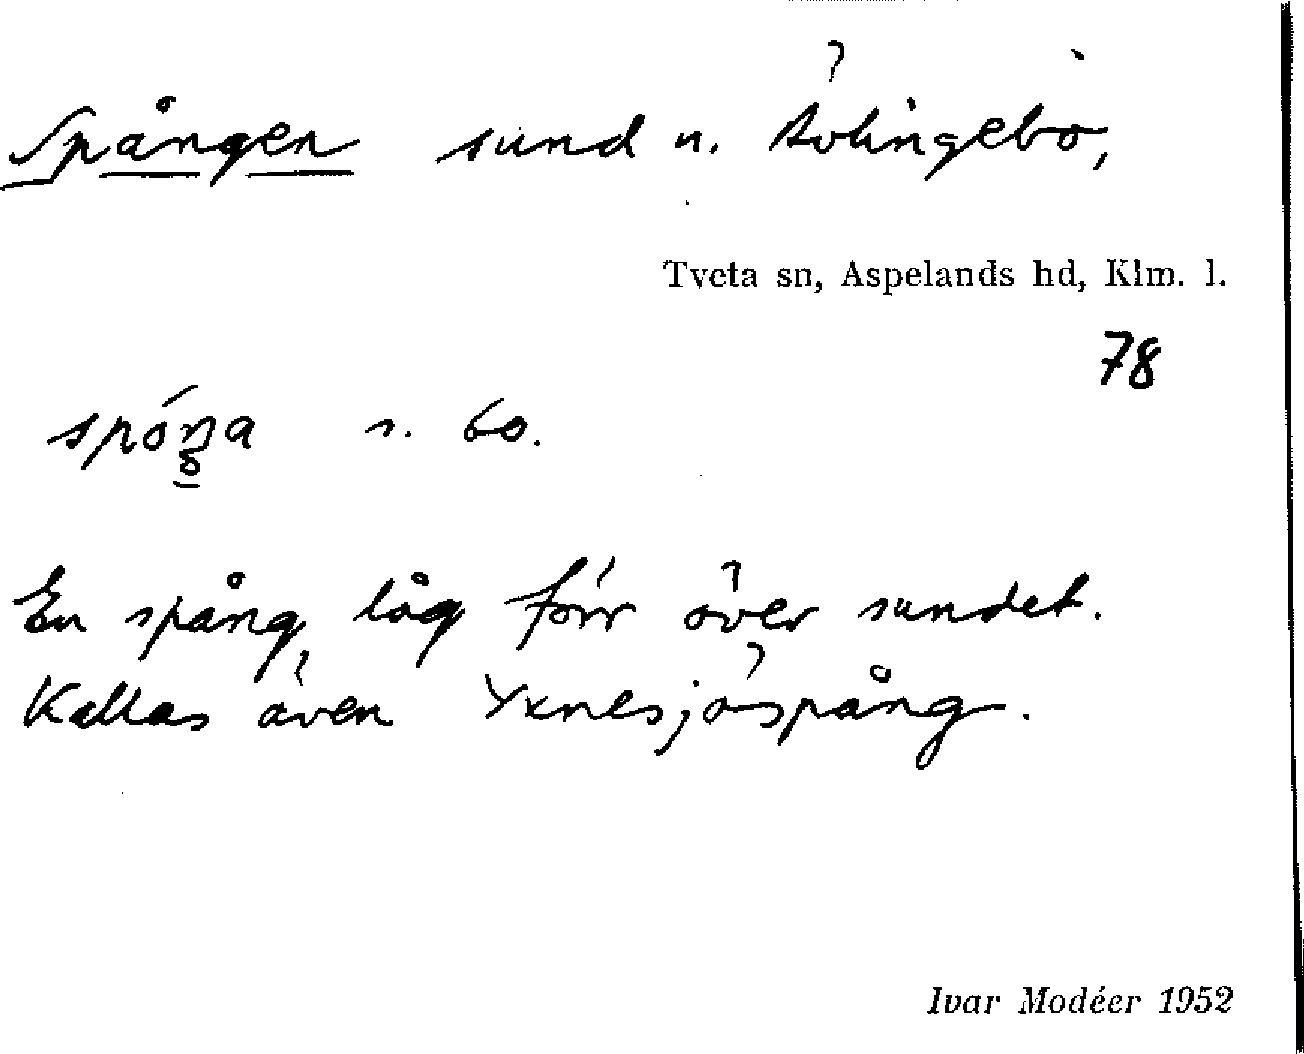 Spången sund n. Ävlingebo,
Tveta sn, Aspelands hd, Klm. l.
78
s. 60.
En spång låg förr över sundet.
Kallas även Yxnesjöspång.
Ivar Modéer 1952